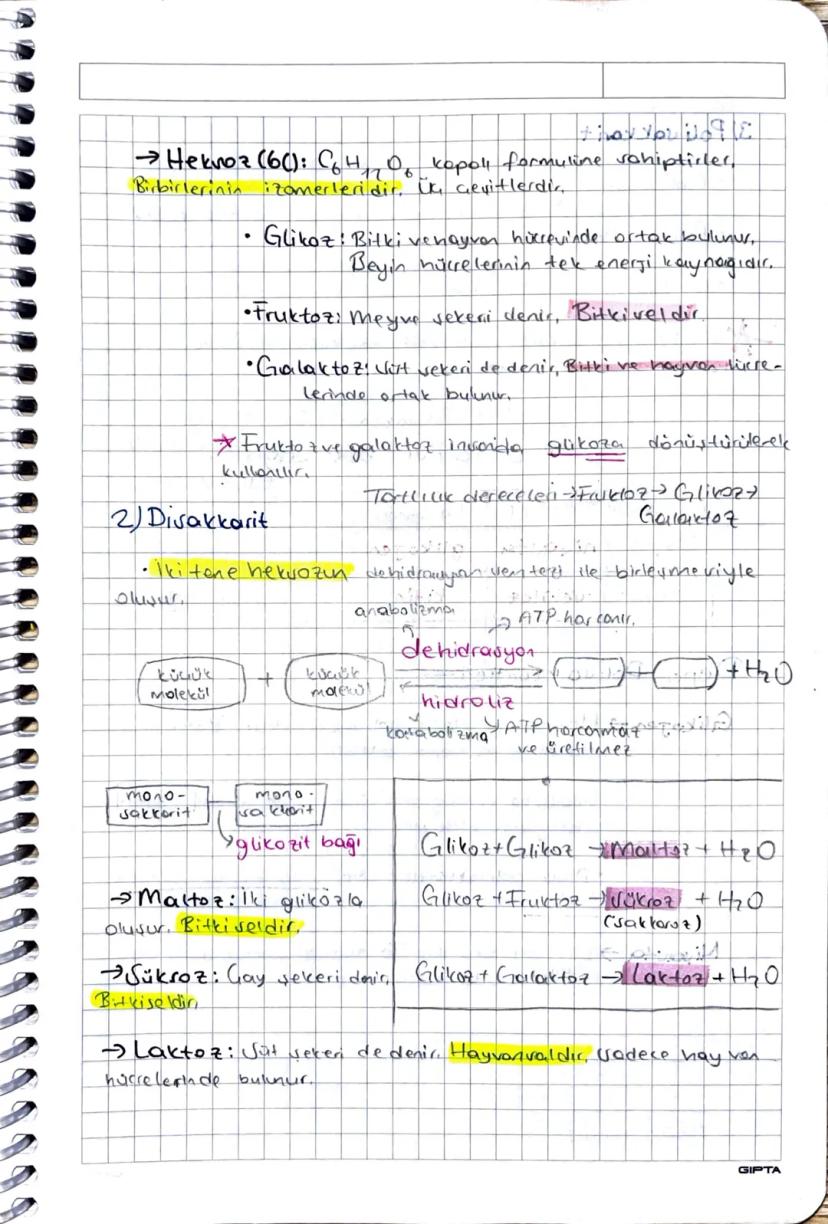 → Heksoz (6C): C₆H₁₂O₆ kapalı formülüne sahiptirler.
Birbirlerinin izomerleridir. Üç çeşitlerdir.
• Glikoz: Bitki ve hayvan hücresinde ortak bulunur.
Beyin hücrelerinin tek enerji kaynağıdır.
• Fruktoz: Meyve şekeri denir. Bitkiseldir.
• Galaktoz: Süt şekeri de denir, Bitki ve hayvan hücre-
lerinde ortak bulunur.
* Fruktoz ve galaktoz insanda glikoza dönüştürülerek
kullanılır.
Tatlılık dereceleri → Fruktoz → Glikoz →
Galaktoz
2) Disakkarit
• İki tane heksozun dehidrasyon sentezi ile birleşmesiyle
oluşur.
anabolizma
ATP harcanır.
dehidrasyon
küçük
molekül
+
küçük
molekül
+ H₂O
hidroliz
katabolizma
ATP harcanmaz
ve üretilmez
mono-
sakkarit
mono-
sakkarit
glikozit bağı
Glikoz + Glikoz → Maltoz + H₂O
Glikoz + Fruktoz → Sükroz + H₂O
(sakkaroz)
Glikoz + Galaktoz → Laktoz + H₂O
→ Maltoz: İki glikozla
oluşur. Bitkiseldir.
→ Sükroz: Çay şekeri denir.
Bitkiseldir.
→ Laktoz: Süt şekeri de denir. Hayvansaldır, sadece hayvan
hücrelerinde bulunur.
GIPTA